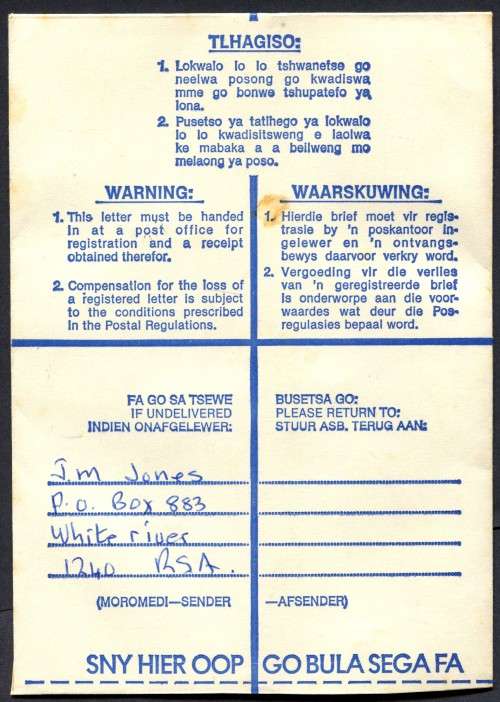 TLHAGISO:
1. Lokwalo lo lo tshwanetse go
neelwa posong go kwadiswa
mme go bonwe tshupatefo ya
lona.
2. Pusetso ya tatlhego ya lokwalo
lo lo kwadisitsweng e laolwa
ke mabaka a a beilweng mo
melaong ya poso.
WARNING:
1. This letter must be handed
in at a post office for
registration and a receipt
obtained therefor.
2. Compensation for the loss of
a registered letter is subject
to the conditions prescribed
in the Postal Regulations.
WAARSKUWING:
1. Hierdie brief moet vir regis-
trasie by 'n poskantoor in-
gelewer en 'n ontvangs-
bewys daarvoor verkry word.
2. Vergoeding vir die verlies
van 'n geregistreerde brief
is onderworpe aan die voor-
waardes wat deur die Pos-
regulasies bepaal word.
FA GO SA TSEWE
IF UNDELIVERED
INDIEN ONAFGELEWER:
BUSETSA GO:
PLEASE RETURN TO:
STUUR ASB. TERUG AAN:
J.M Jones
P.O. Box 883
White river
1240 RSA.
(MOROMEDI—SENDER —AFSENDER)
SNY HIER OOP GO BULA SEGA FA